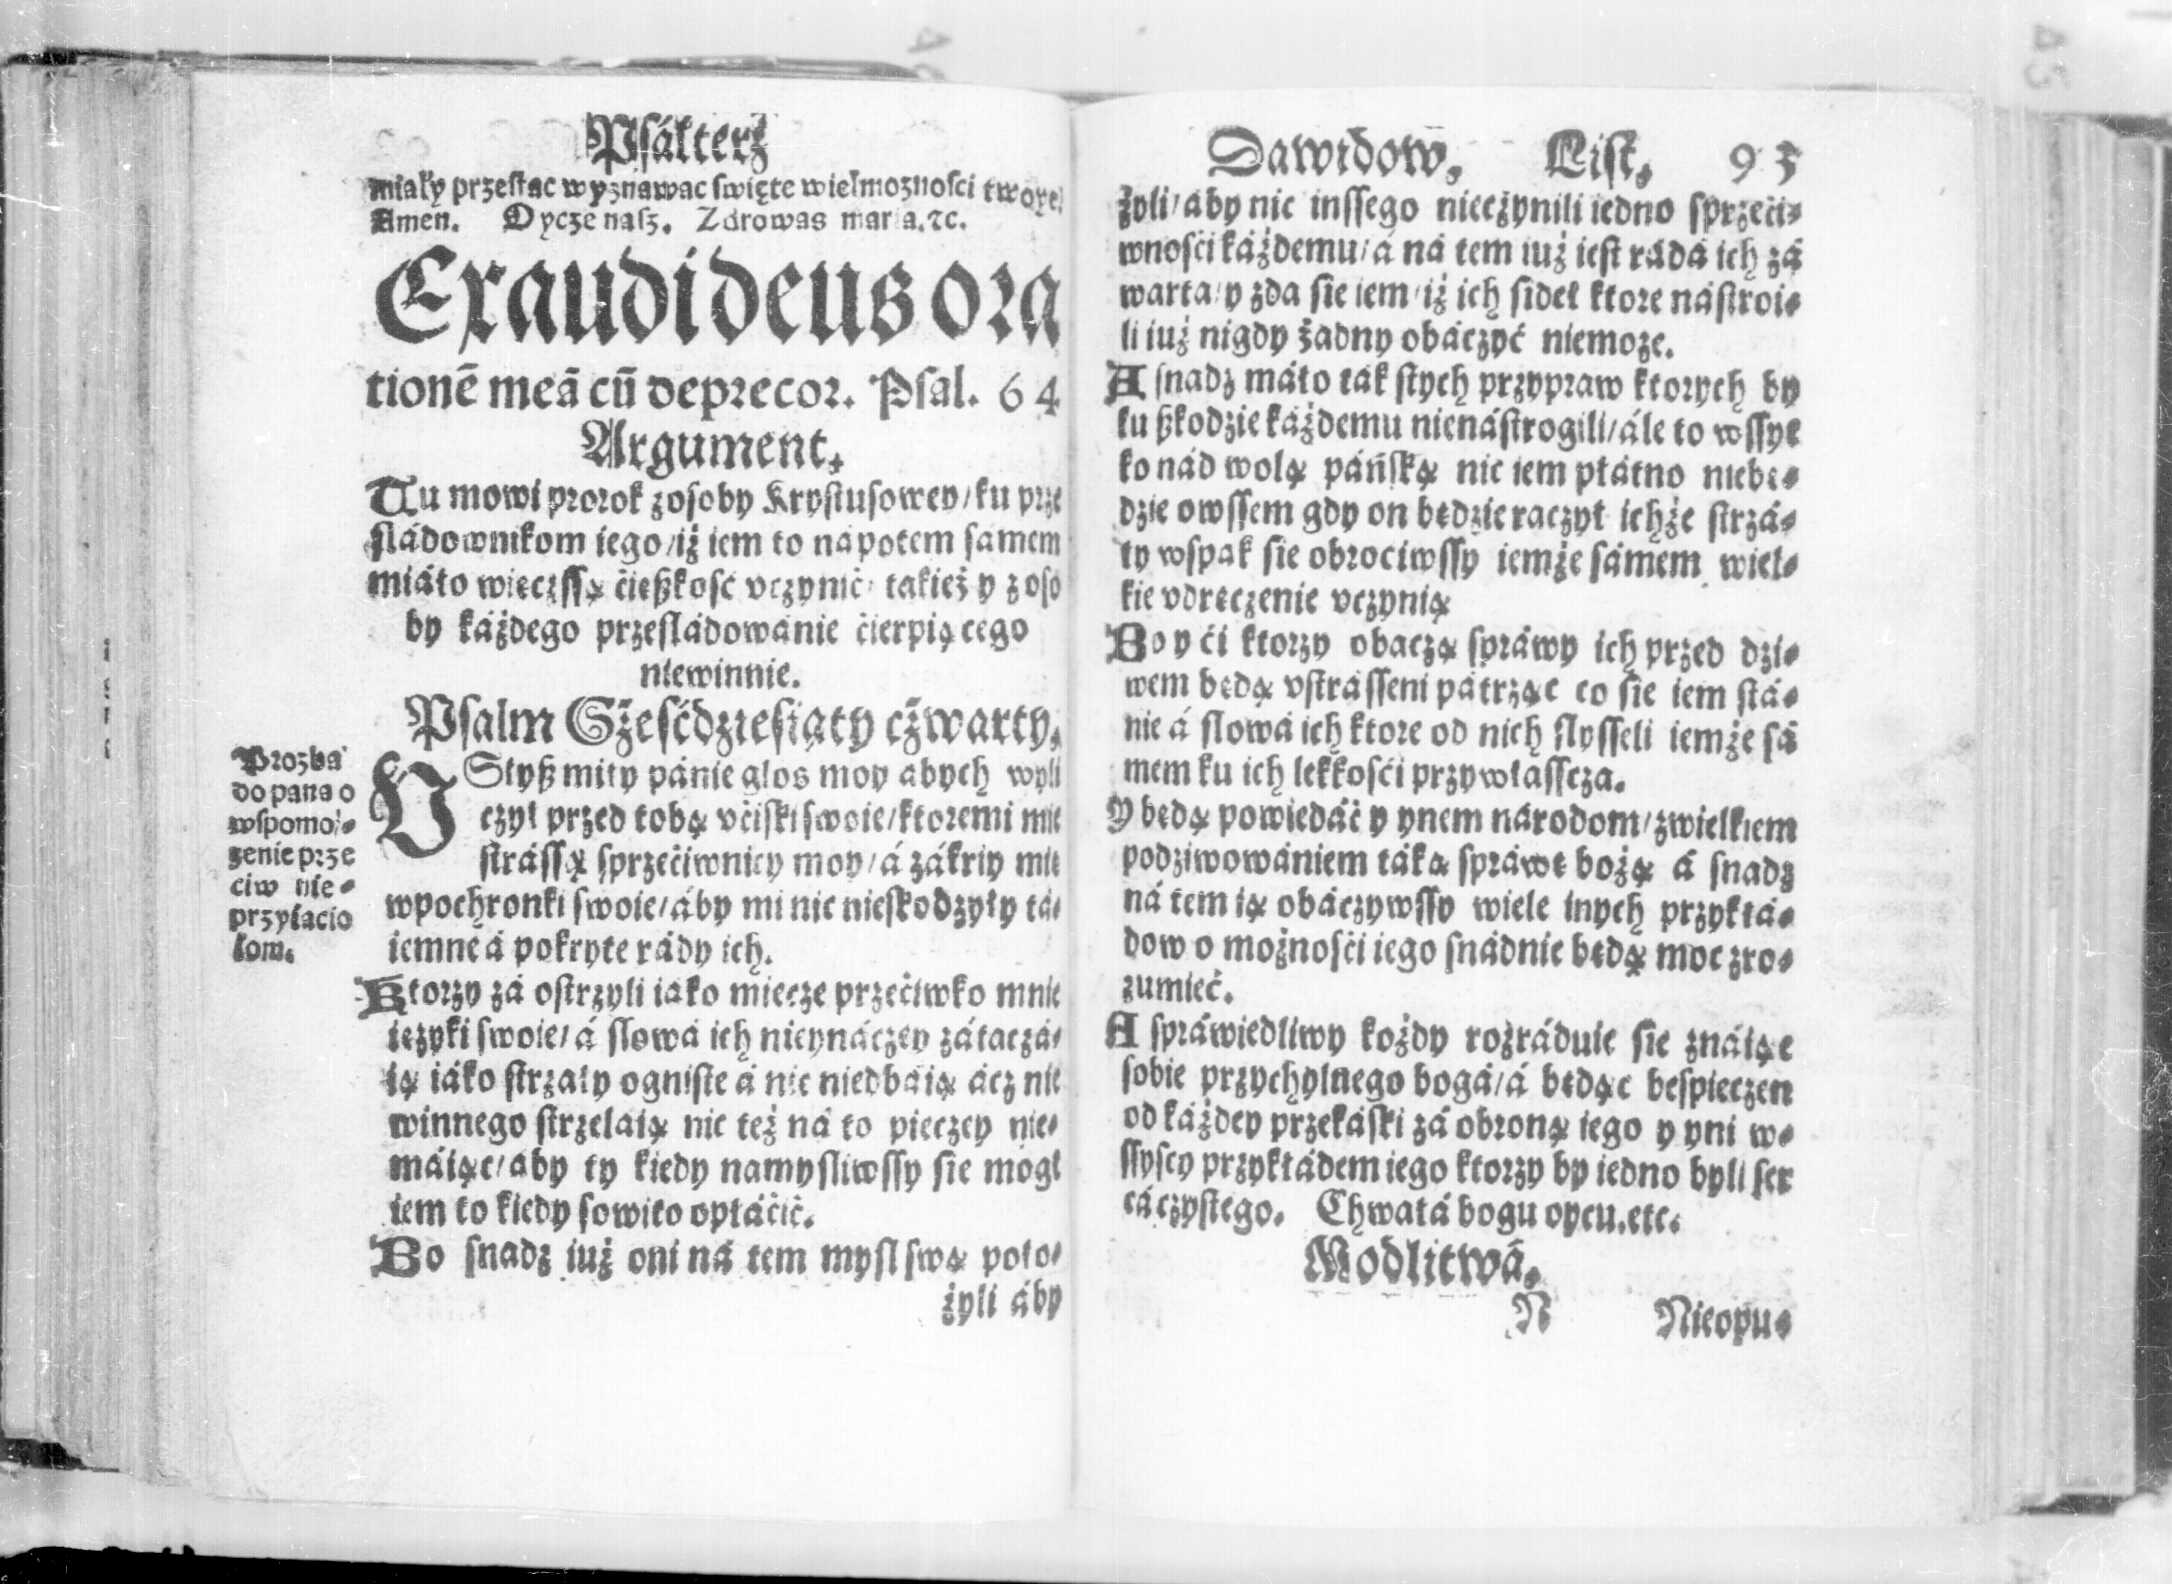 Psálterż
miáły przestac wyznawac święte wielmoznosci twoye
Amen. Oycze nasz. Zdrowas maria. ⁊c.
Exaudi deus ora
tionē meā cū deprecor. Psal. 64
Argument.
Tu mowi prorok z osoby Krystusowey/ ku prze
sládownikom iego/ iż iem to nápotem samem
miáło więczssą ćießkość vczynić/ takież y z oso
by káżdego przesládowánie ćierpiącego
niewinnie.
Psalm Sżesćdziesiąty cżwarty.
Prozba
do pana o
wspomo-
zenie prze
ciw nie-
przyiacio
łom.
VSłyß miły pánie glos moy abych wyli
czył przed tobą vćiski swoie/ ktoremi mie
strássą sprzećiwnicy moy/ á zákriy mie
wpochronki swoie/ áby mi nic nieskodzyły tá-
iemne á pokryte rády ich.
Ktorzy zá ostrzyli iako miecze przećiwko mnie
ięzyki swoie/ á słowá ich nieynáczey zátaczá-
ią iáko strzały ogniste á nic niedbáią ácz nie
winnego strzelaią nic też ná to pieczey nie-
máiąc/ aby ty kiedy namysliwssy sie mogł
iem to kiedy sowito opłáćić.
Bo snadz iuż oni ná tem mysl swą poło-
żyli áby
Dawidow. List. 93
żyli/ aby nic inssego nieczynili iedno sprzeći-
wnosći káżdemu/ á ná tem iuż iest rádá ich zá
warta/ y zda sie iem/ iż ich sideł ktore nástroi-
li iuż nigdy żadny obáczyć niemoże.
A snadz máło ták stych przypraw ktorych by
ku ßkodzie káżdemu nienástrogili/ ále to wssyt
ko nád wolą páńską nic iem płátno niebę-
dzie owssem gdy on będzie raczył ichże strzá-
ły wspak sie obrociwssy iemże sámem wiel-
kie vdręczenie vczynią
Bo y ći ktorzy obaczą spráwy ich przed dzi-
wem będą vstrásseni pátrząc co sie iem stá-
nie á słowá ich ktore od nich słysseli iemże sá
mem ku ich lekkosći przywłasscza.
Y będą powiedáć y ynem národom/ zwielkiem
podziwowániem táką spráwę bożą á snadz
ná tem ią obáczywssy wiele inych przykłá-
dow o możnosći iego snádnie będą moc zro-
zumieć.
A spráwiedliwy kożdy rozráduie sie znáiąc
sobie przychylnego bogá/ á będąc bespieczen
od káżdey przekáski zá obroną iego y yni w-
ssyscy przykłádem iego ktorzy by iedno byli ser
cá czystego. Chwałá bogu oycu. etc.
Modlitwá.
N Nieopu-